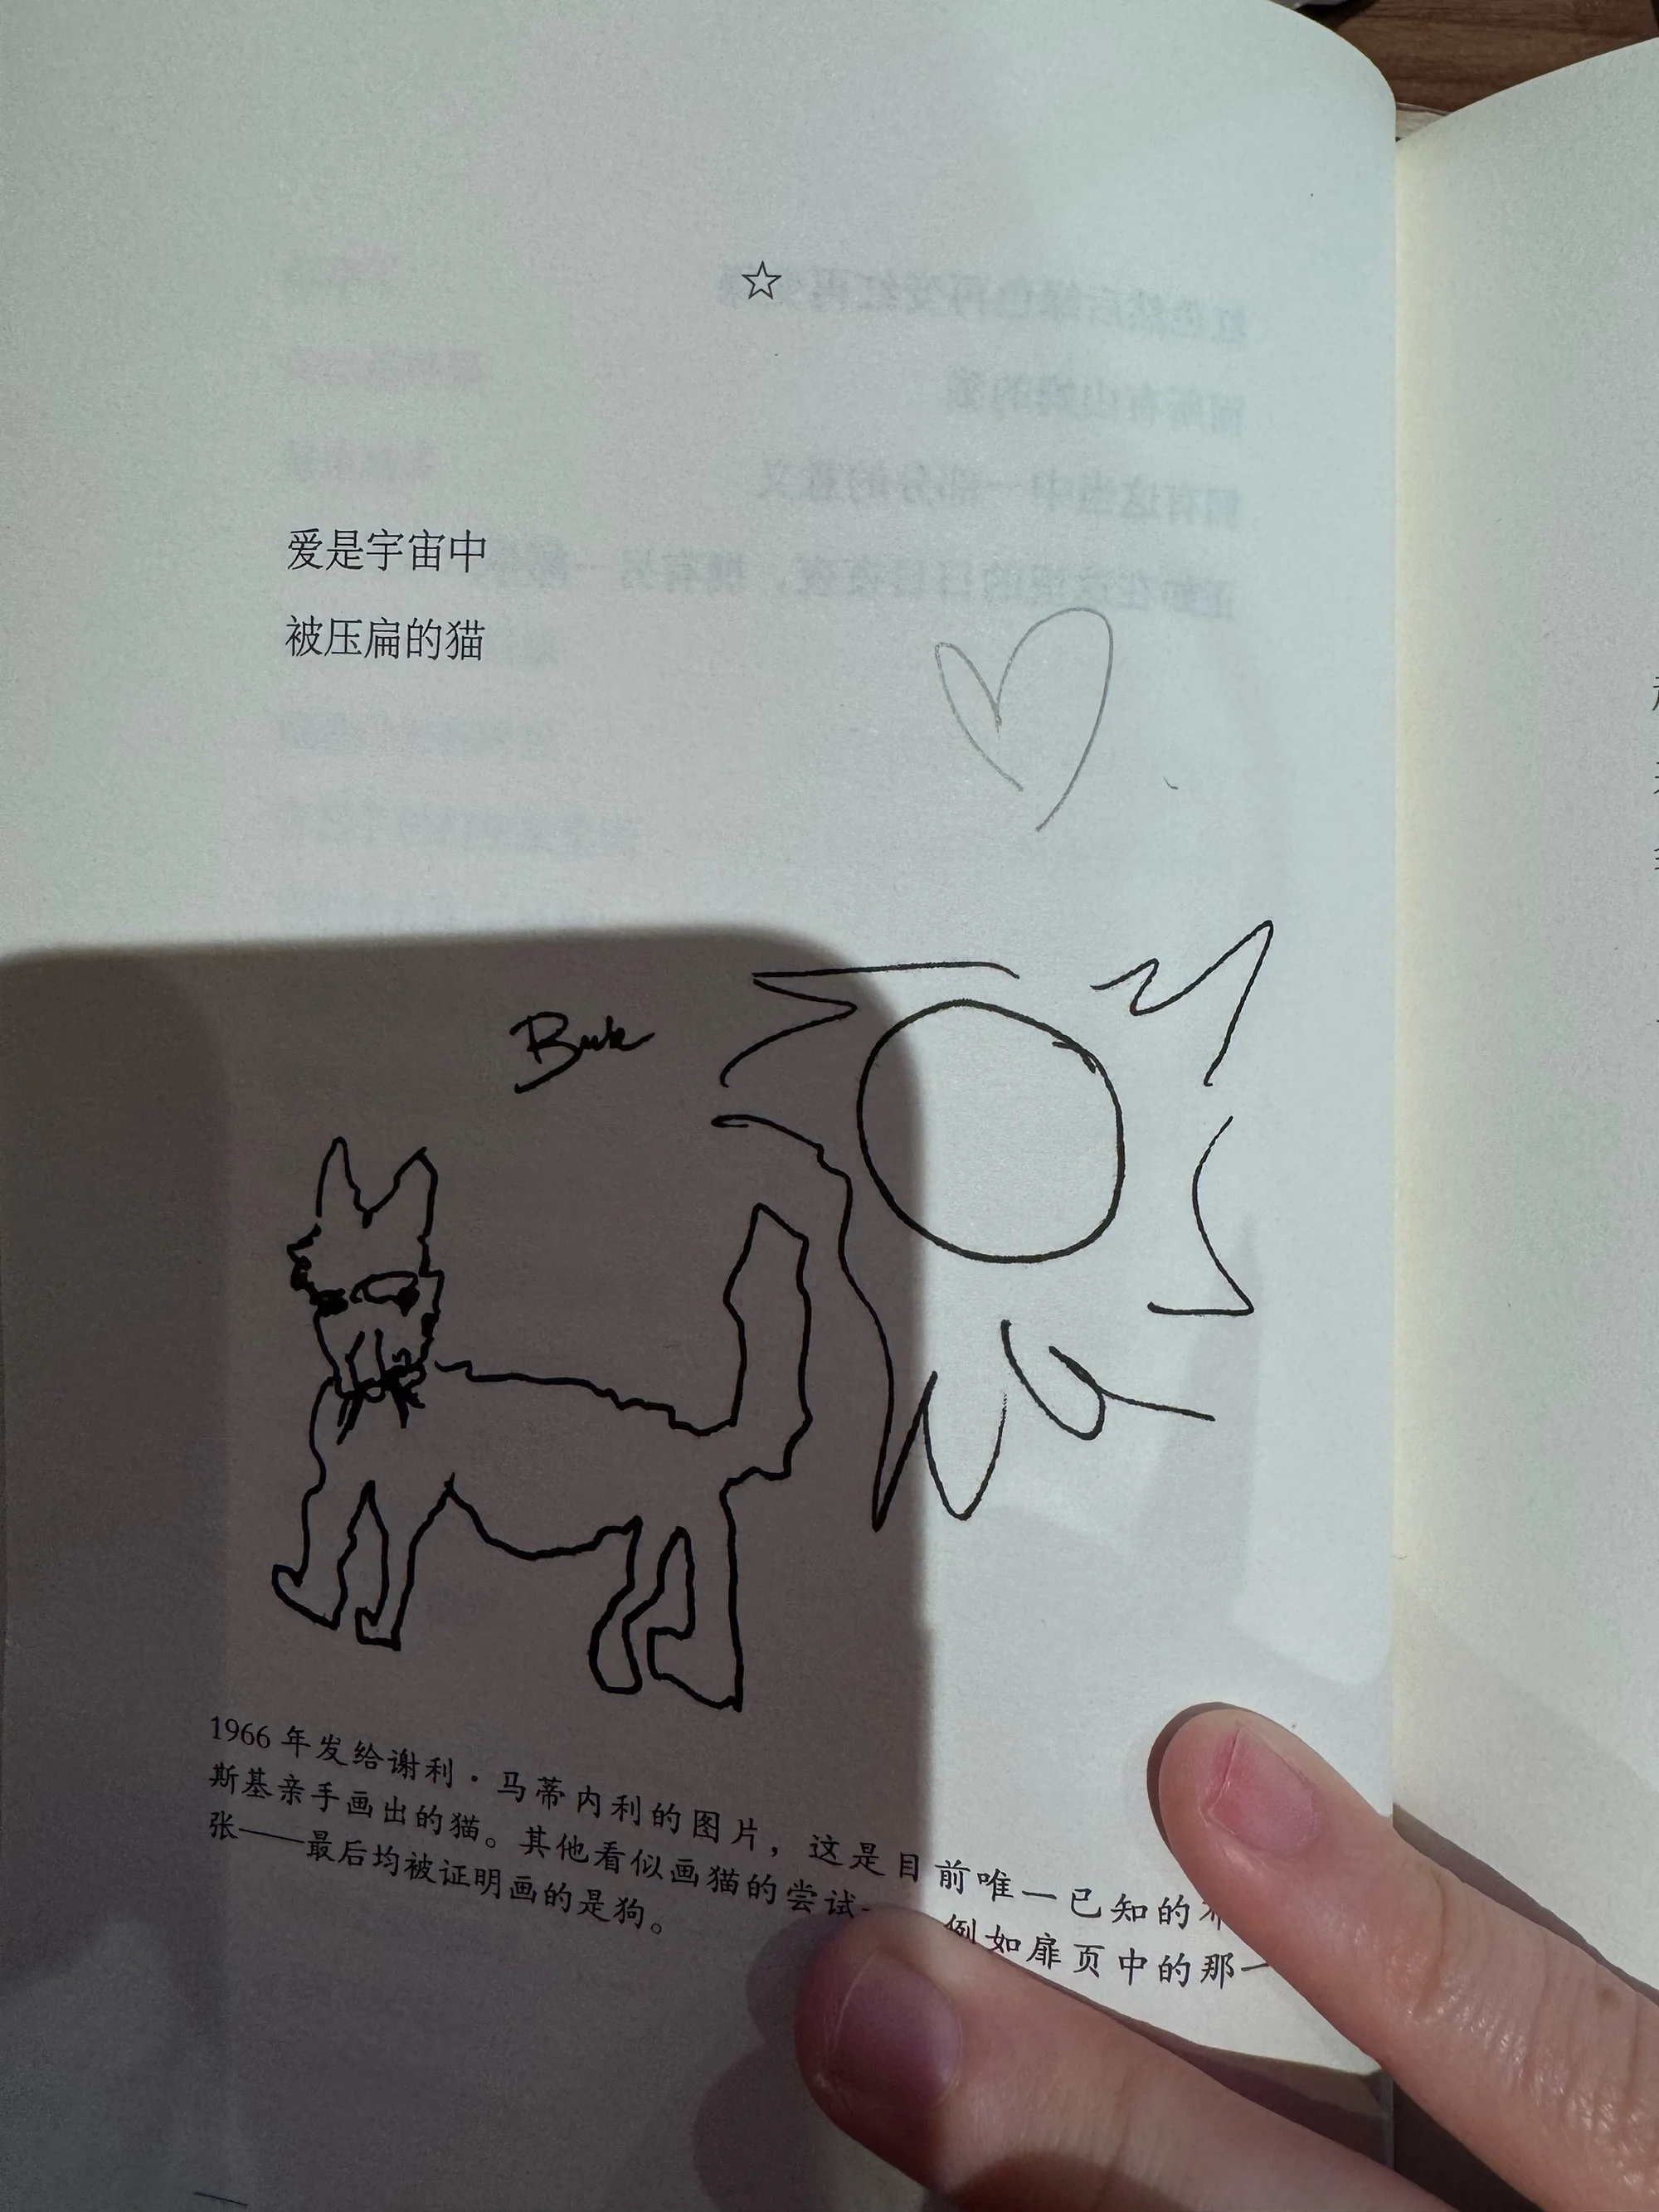 ☆
爱是宇宙中
被压扁的猫
Buk
1966 年发给谢利·马蒂内利的图片，这是目前唯一已知的
斯基亲手画出的猫。其他看似画猫的尝试 例如扉页中的那一
张——最后均被证明画的是狗。